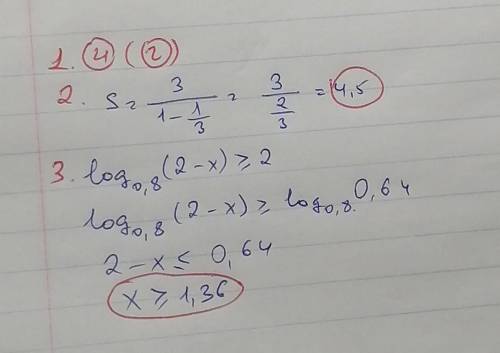 1. 4 (2)
2. S = 3/(1 - 1/3) = 3/(2/3) = 4,5
3. log₀,₈(2-x) ≥ 2
log₀,₈(2-x) ≥ log₀,₈ 0,64
2-x ≤ 0,64
x ≥ 1,36